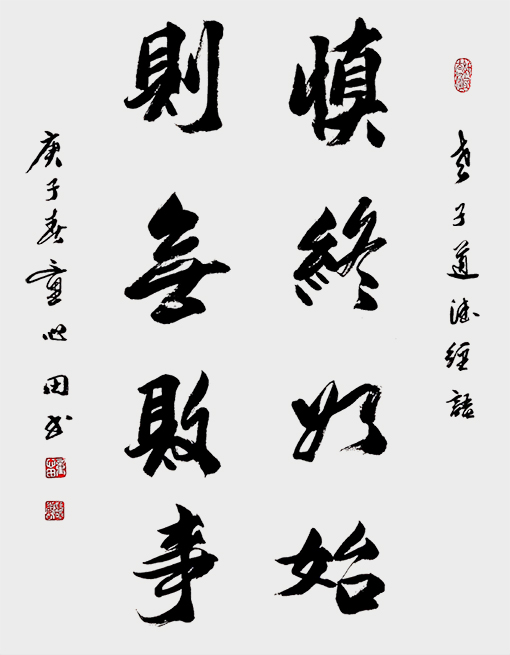 老子道德經語
慎終如始
則無敗事
庚子春童心田书